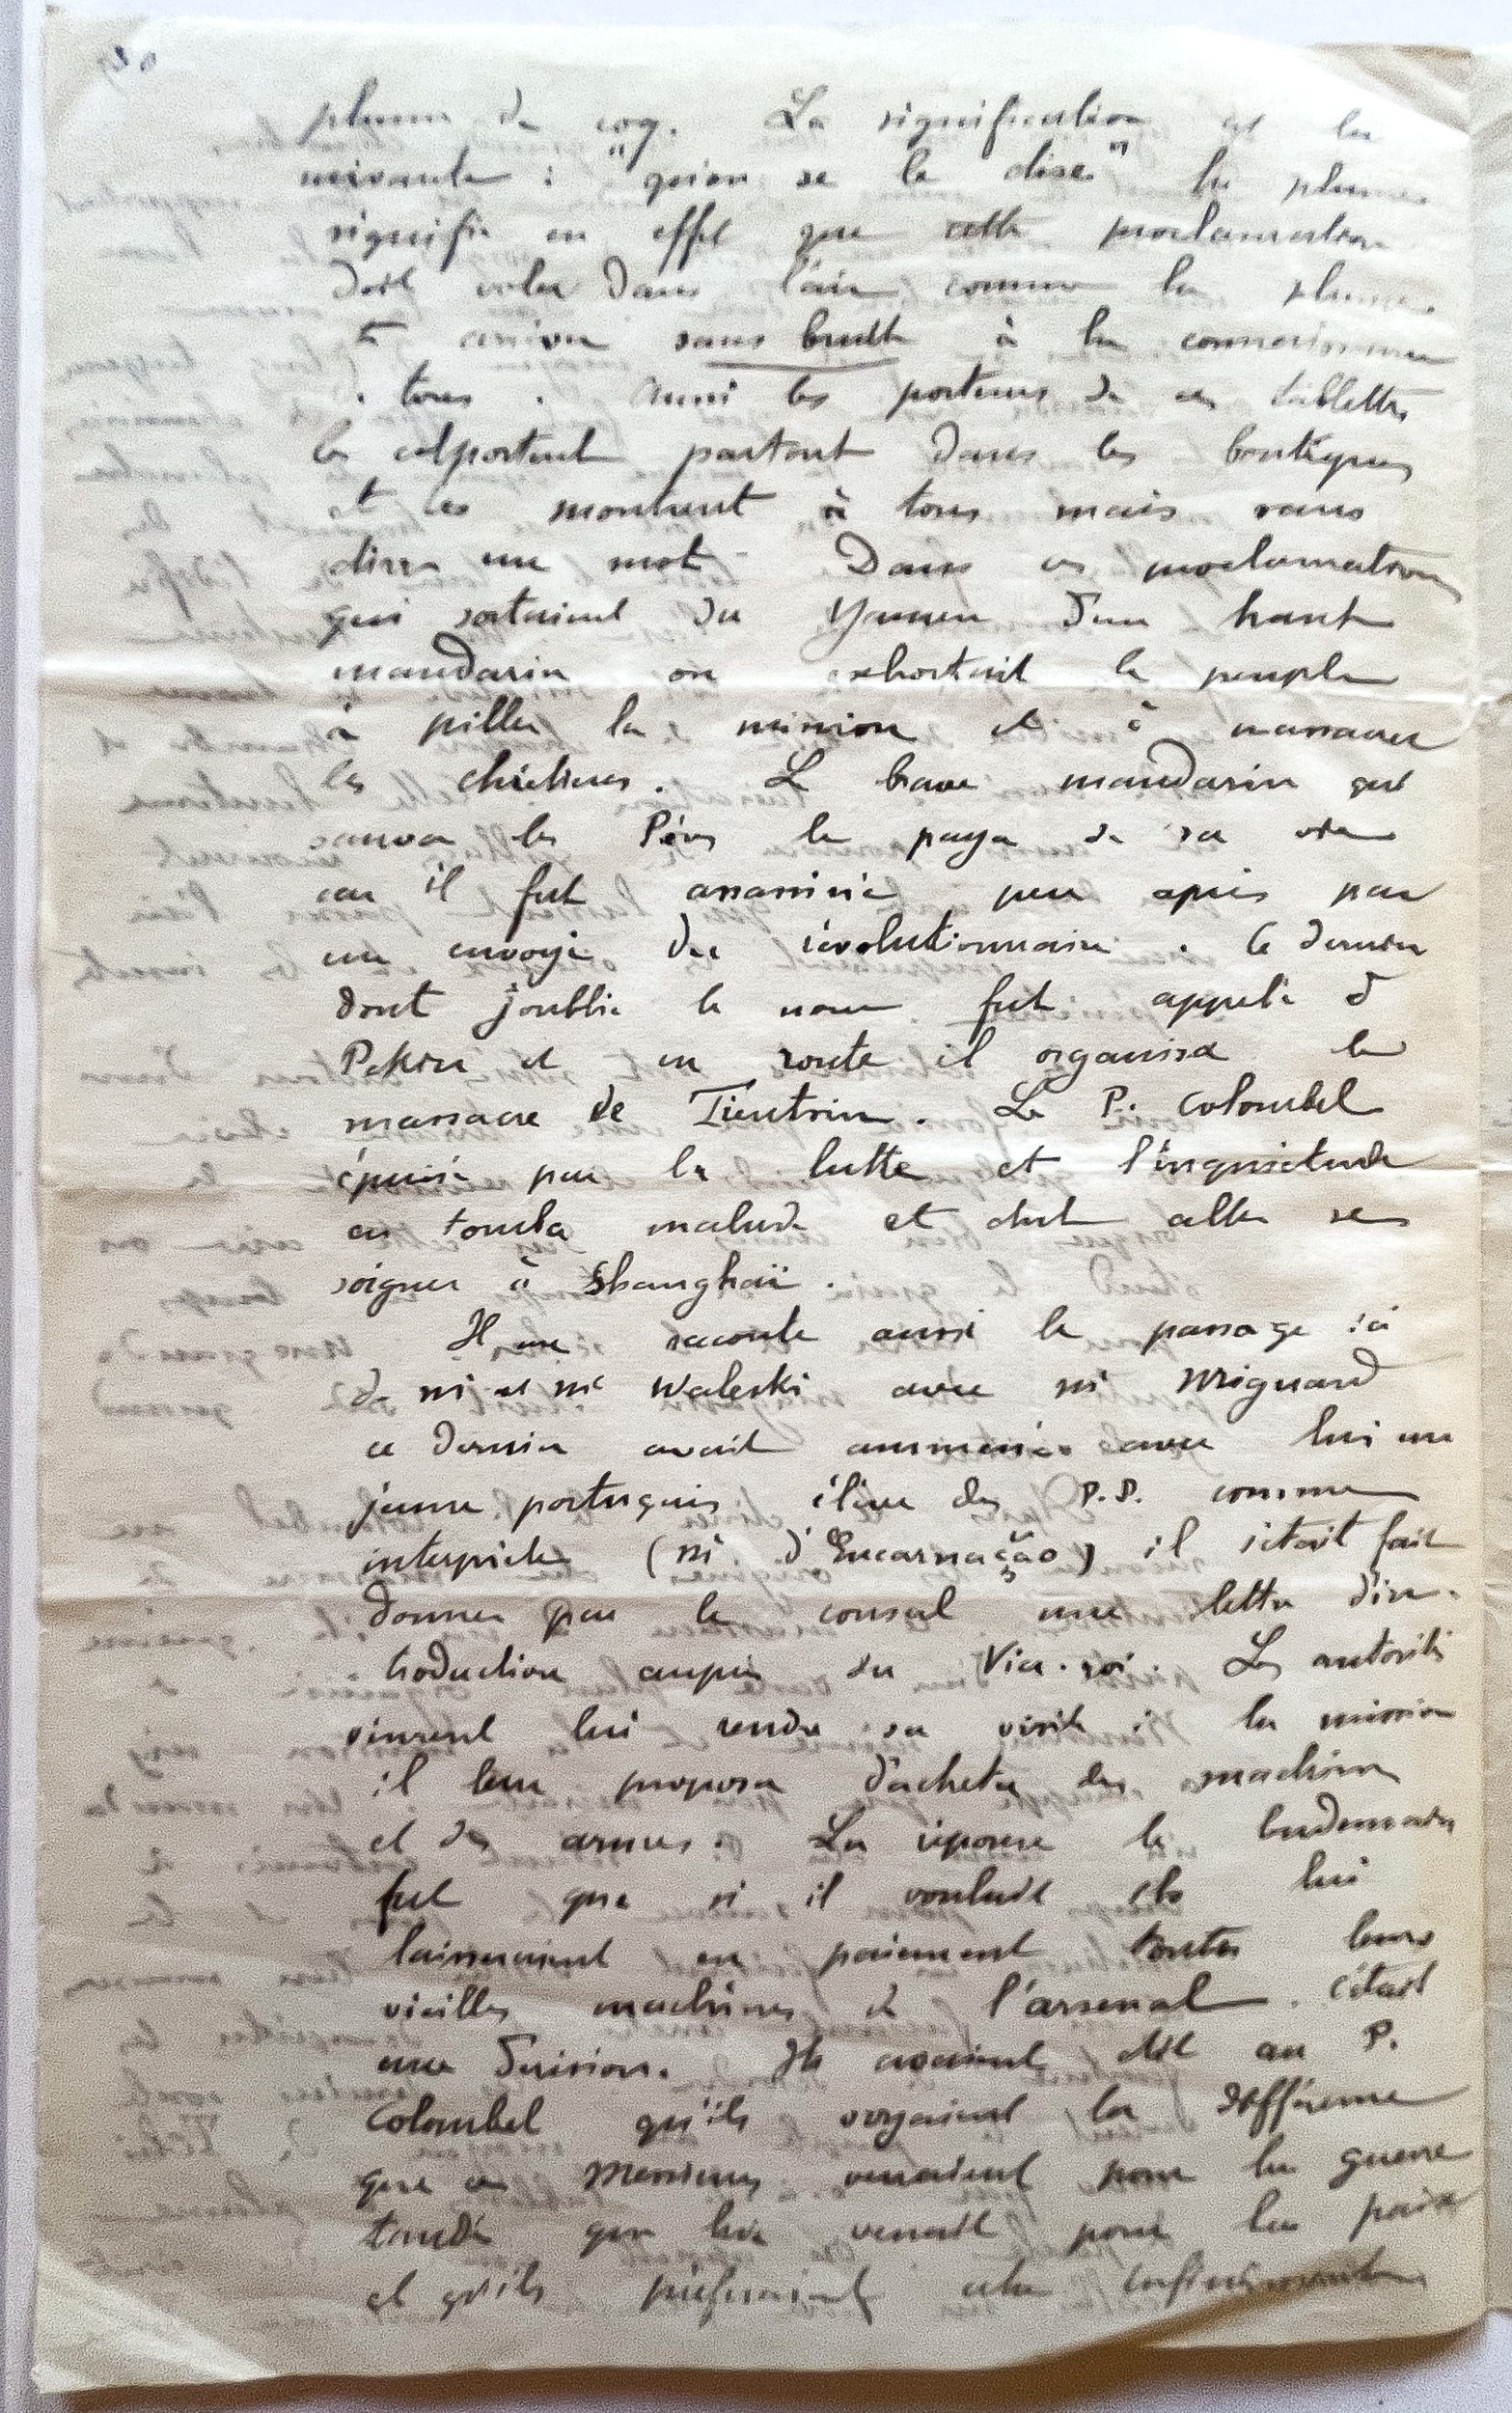 plume de coq. La signification est la
suivante : "qu'on se le dise" la plume
signifie en effet que cette proclamation
doit voler dans l'air comme la plume
et arriver sans bruit à la connaissance
de tous. Aussi les porteurs de ces tablettes
les colportent partout dans les boutiques
et les montrent à tous mais sans
dire un mot. Dans ces proclamations
qui sortaient du Yamen d'un haut
mandarin on exhortait le peuple
à piller la mission et à massacrer
les chrétiens. Le brave mandarin qui
sauva les Pères le paya de sa vie
car il fut assassiné peu après par
un envoyé du révolutionnaire. Ce dernier
dont j'oublie le nom fut appelé à
Pekin et en route il organisa le
massacre de Tientsin. Le P. Colombel
épuisé par la lutte et l'inquiétude
en tomba malade et dut aller se
soigner à Shanghaï.
Il me raconte aussi le passage ici
de Mr et Me Waleski avec Mr Mignard
ce dernier avait ammené avec lui un
jeune portugais élève des P.P. comme
interprète (Mr d'Encarnação) il s'était fait
donner par le consul une lettre d'in-
troduction auprès du Vice-roi. Les autorités
vinrent lui rendre sa visite à la mission
il leur proposa d'acheter des machines
et des armes. La réponse le lendemain
fut que si il voulait ils lui
laisseraient en paiement toutes leurs
vieilles machines de l'arsenal. C'était
une dérision. Ils avaient dit au P.
Colombel qu'ils voyaient la différence
que ces Messieurs venaient pour la guerre
tandis que lui venait pour la paix
et qu'ils préféraient cela infiniment